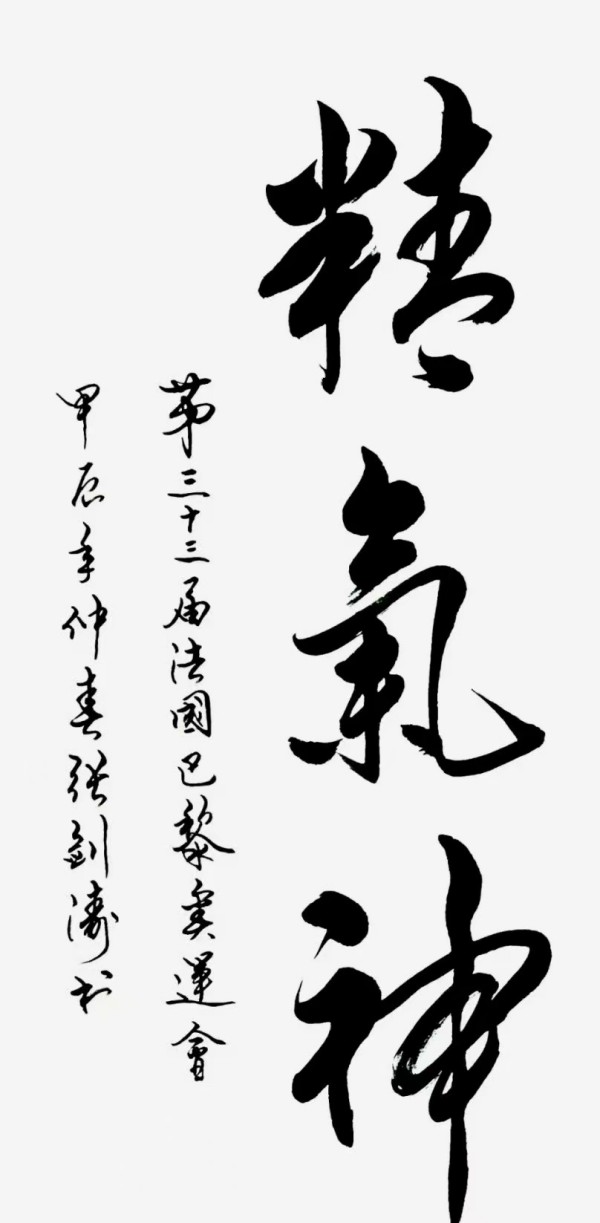 精氣神
第三十三届法國巴黎奥運會
甲辰年仲春张劍濤书